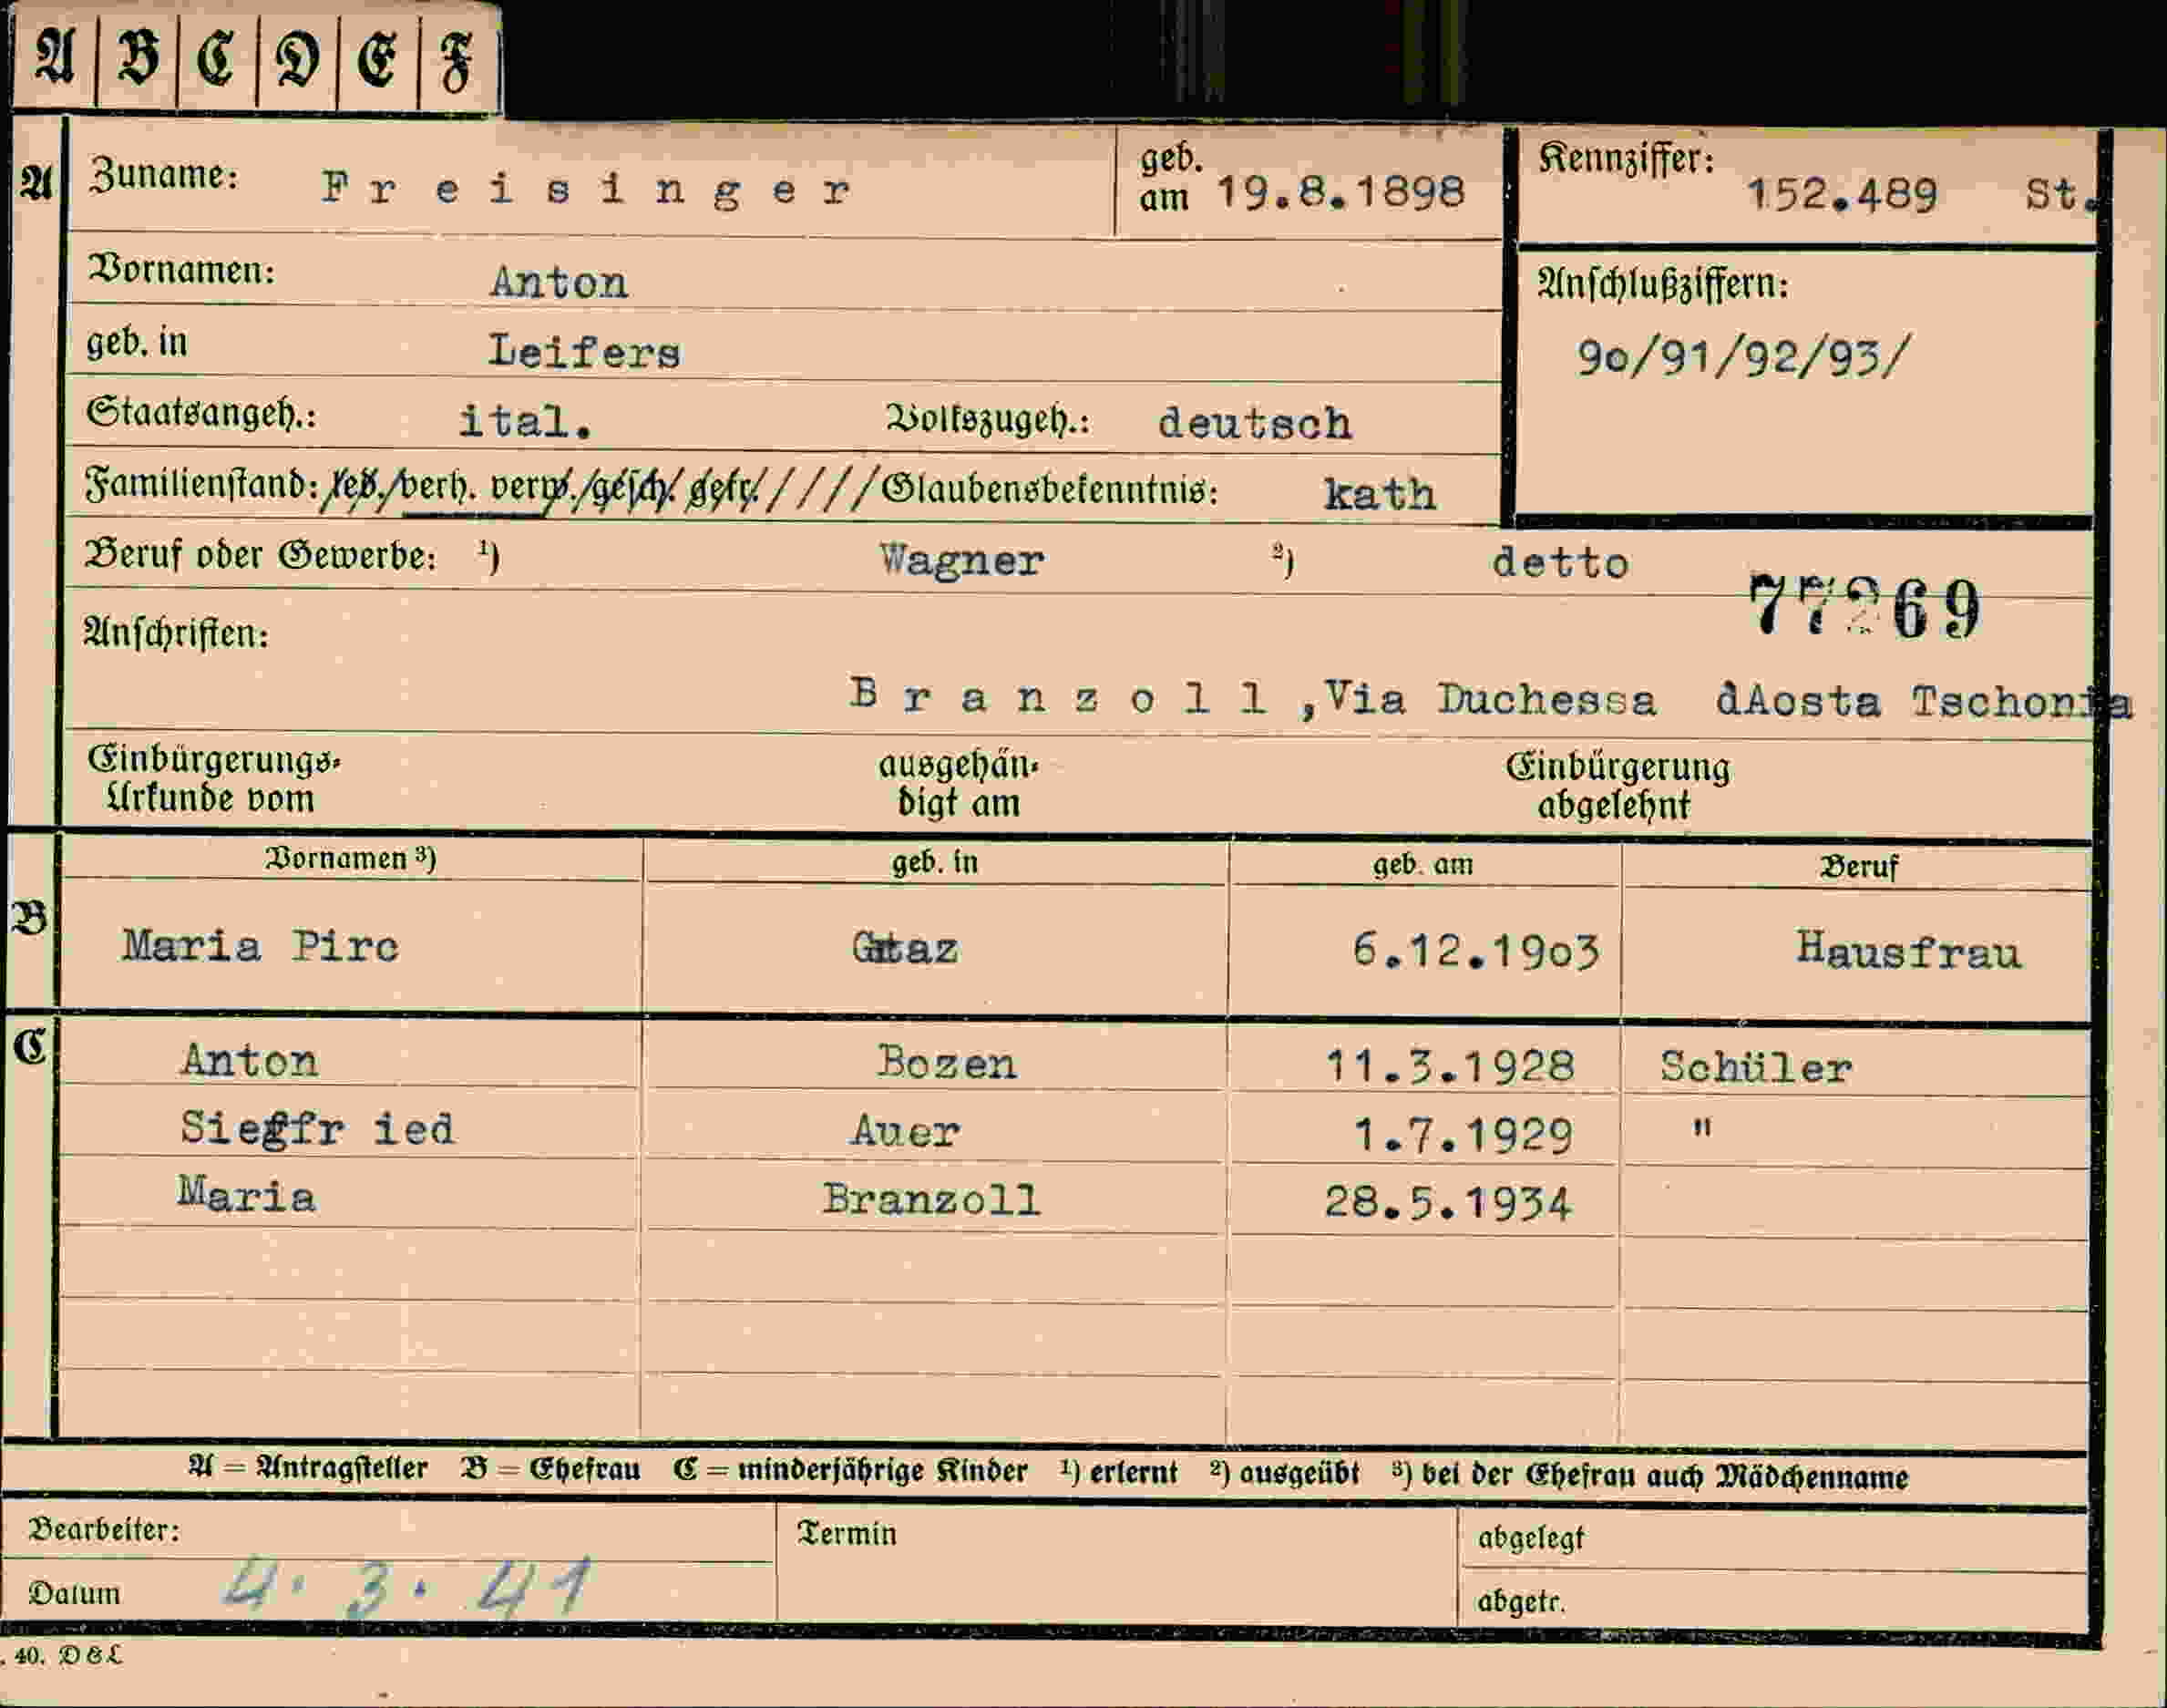 A B C D E F
A Zuname: Freisinger geb. am 19.8.1898 Kennziffer: 152.489 St.
Vornamen: Anton Anschlußziffern:
geb. in Leifers 90/91/92/93/
Staatsangeh.: ital. Volkszugeh.: deutsch
Familienstand: led./verh. verw./gesch. getr./////Glaubensbekenntnis: kath
Beruf oder Gewerbe: ¹) Wagner ²) detto
77269
Anschriften:
Branzoll, Via Duchessa dAosta
Einbürgerungs- ausgehän- Einbürgerung
Urkunde vom digt am abgelehnt
Vornamen ³) geb. in geb. am Beruf
B Maria Pirc 6.12.1903 Hausfrau
C Anton Bozen 11.3.1928 Schüler
Siegfr ied Auer 1.7.1929 "
Maria Branzoll 28.5.1934
A = Antragsteller B = Ehefrau C = minderjährige Kinder ¹) erlernt ²) ausgeübt ³) bei der Ehefrau auch Mädchenname
Bearbeiter: Termin abgelegt
Datum 4. 3. 41 abgetr.
. 40. D & L